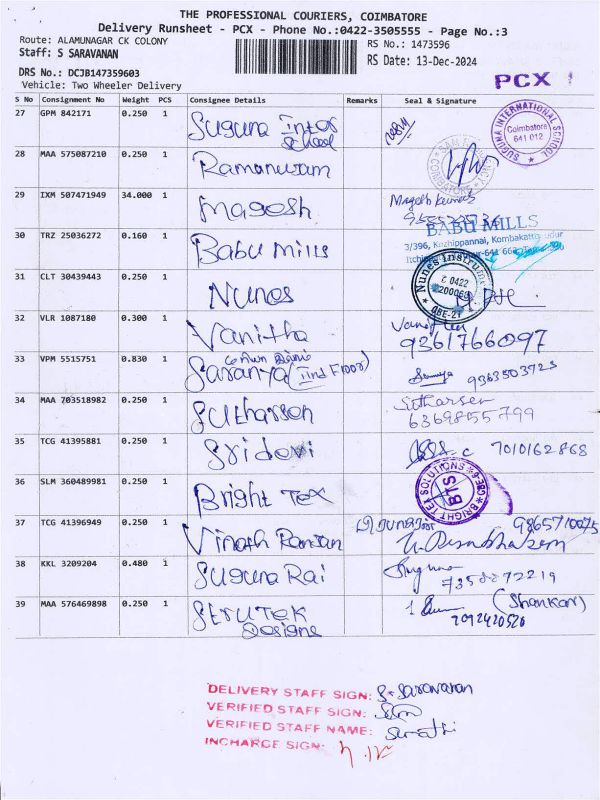 THE PROFESSIONAL COURIERS, COIMBATORE
Delivery Runsheet - PCX - Phone No.:0422-3505555 - Page No.:3
Route: ALAMUNAGAR CK COLONY
RS No.: 1473596
Staff: S SARAVANAN
RS Date: 13-Dec-2024
DRS No.: DCJB147359603
PCX
Vehicle: Two Wheeler Delivery
S No Consignment No Weight PCS Consignee Details Remarks Seal & Signature
27 GPM 842171 0.250 1 Suguna Inter School
SUGUNA INTERNATIONAL SCHOOL Coimbatore 641 012
28 MAA 575087210 0.250 1
29 IXM 507471949 34.000 1 Magesh Magesh kumar
30 TRZ 25036272 0.160 1 Babu Mills BABU MILLS
3/396, Kuzhippannai,
31 CLT 30439443 0.250 1 Nunes Nunes Instruments
C 0422
CBE-21
32 VLR 1087180 0.300 1 Vanitha 9361766097
33 VPM 5515751 0.830 1 Saranya (IInd Floor) 9363503723
34 MAA 703518982 0.250 1 Sutharsen Sutharsen
6369855799
35 TCG 41395881 0.250 1 Sridevi 7010162868
36 SLM 360489981 0.250 1 Bright Tex BRIGHT TEX SOLUTIONS BTS CBE-6
37 TCG 41396949 0.250 1 Vinoth 9865710075
38 KKL 3209204 0.480 1 Suguna Rai Suguna
7358272219
39 MAA 576469898 0.250 1 Strutek Designs (Shankar)
DELIVERY STAFF SIGN: S. Saravanan
VERIFIED STAFF SIGN:
VERIFIED STAFF NAME: Sumathi
INCHARGE SIGN: